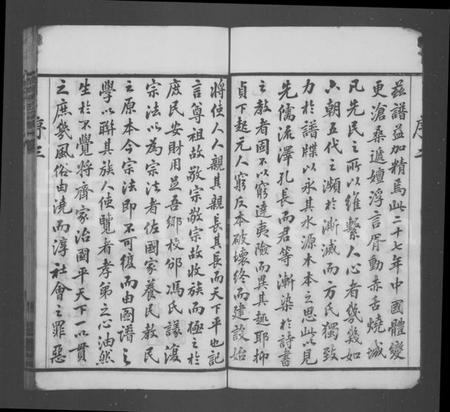 茲譜益加精焉此二十七年中國體變
更滄桑遞嬗浮言胥動赤舌燒城
凡先民之所以維繫人心者幾幾如
六朝五代之瀕於漸滅而方氏獨致
力於譜牒以永其水源木本之思此以見
先儒流澤孔長而君等漸染於詩書
之教者固不以窮達夷險而異其趣耶抑
貞下起元人窮反本破壞終而建設始
序二
將使人人親其親長其長而天下平也記
言尊祖故敬宗敬宗故收族而極之於
庶民安財用足吾鄉校邠馮氏議復
宗法以為宗法者佐國家養民教民
之原本今宗法即不可復而由國譜之
學以聯其族人使覽者孝弟之心油然
生於不覺將齊家治國平天下一以貫
之庶幾風俗由澆而淳社會之罪惡
序三